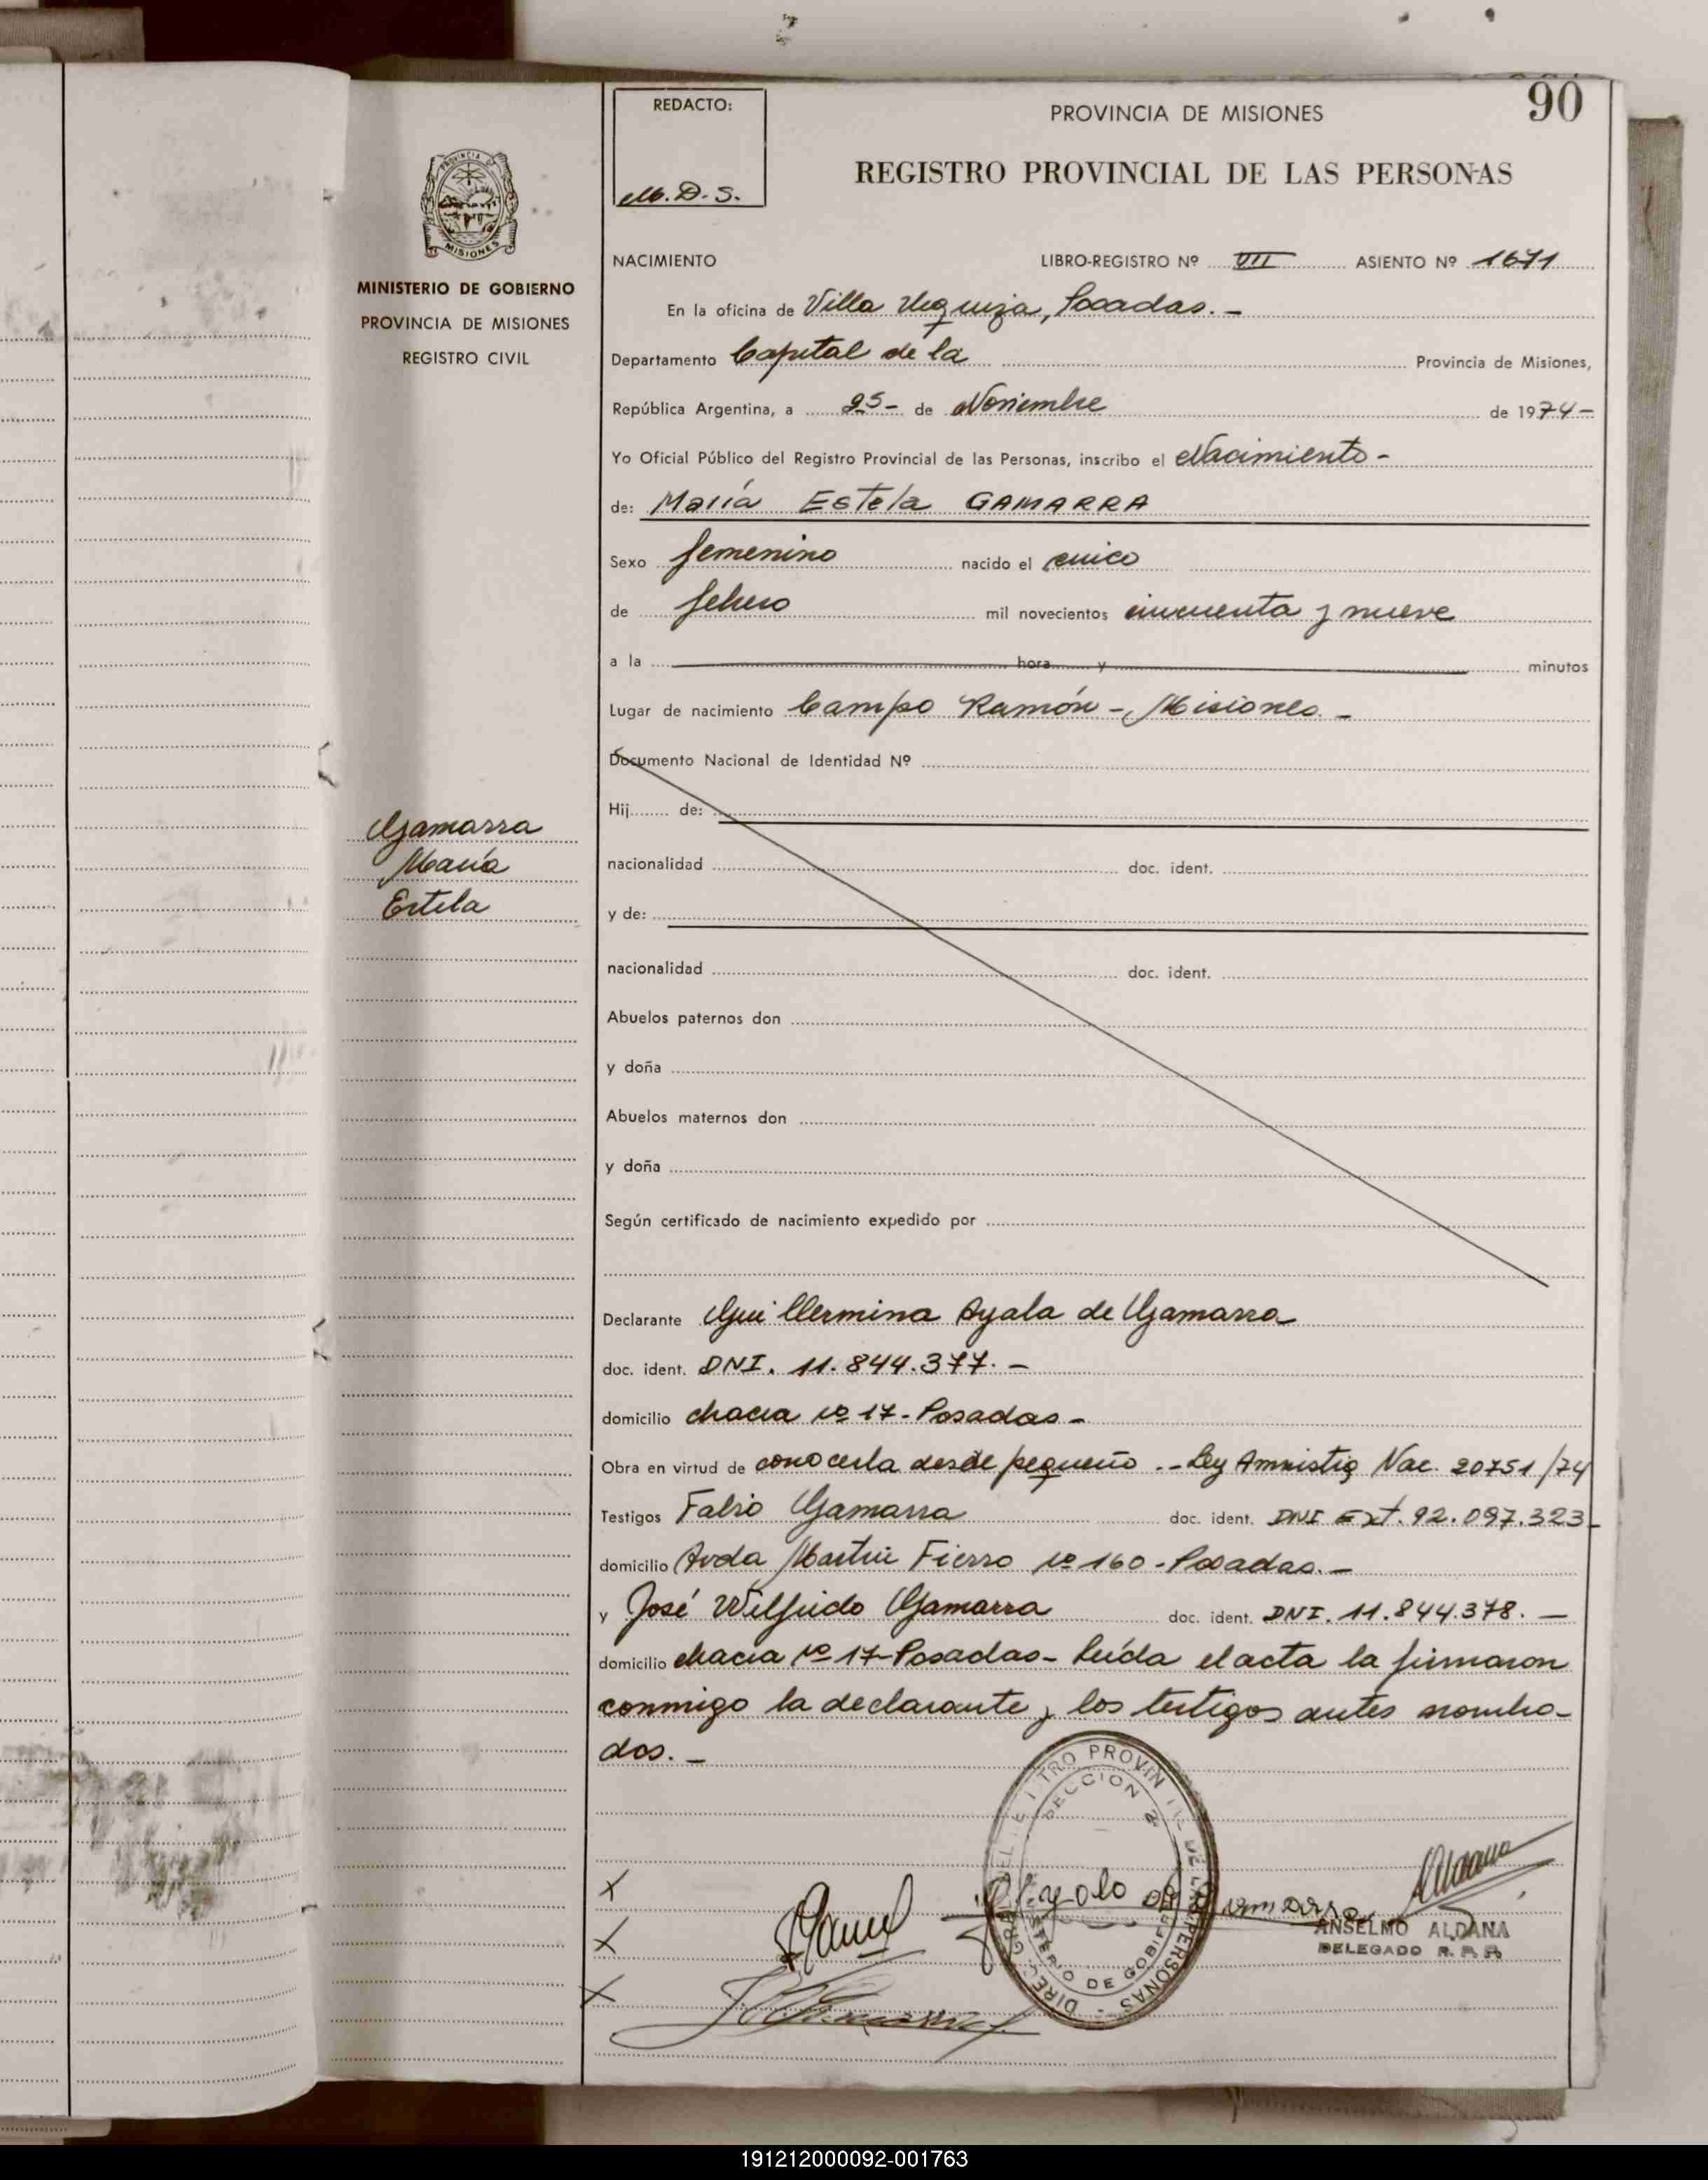 90
REDACTO:
M.D.S.
PROVINCIA DE MISIONES
REGISTRO PROVINCIAL DE LAS PERSONAS
PROVINCIA DE
MISIONES
MINISTERIO DE GOBIERNO
PROVINCIA DE MISIONES
REGISTRO CIVIL
NACIMIENTO LIBRO-REGISTRO Nº VII ASIENTO Nº 1671
En la oficina de Villa Urquiza, Posadas.-
Departamento Capital de la Provincia de Misiones,
República Argentina, a 25- de Noviembre de 1974-
Yo Oficial Público del Registro Provincial de las Personas, inscribo el Nacimiento-
de: María Estela GAMARRA
Sexo femenino nacido el cinco
de febrero mil novecientos cincuenta y nueve
a la hora y minutos
Lugar de nacimiento Campo Ramón - Misiones.-
Documento Nacional de Identidad Nº
Hij de:
Gamarra
María
Estela
nacionalidad doc. ident.
y de:
nacionalidad doc. ident.
Abuelos paternos don
y doña
Abuelos maternos don
y doña
Según certificado de nacimiento expedido por
Declarante Guillermina Ayala de Gamarra
doc. ident. DNI. 11.844.377.-
domicilio chacra Nº 17-Posadas-
Obra en virtud de conocerla desde pequeño.-Ley Amnistia Nac. 20751/74
Testigos Fabio Gamarra doc. ident. DNI Ext. 92.097.323-
domicilio Avda Martin Fierro Nº 160-Posadas.-
y José Wilfrido Gamarra doc. ident. DNI. 11.844.378.-
domicilio chacra Nº 17-Posadas- Leída el acta la firmaron
conmigo la declarante y los testigos antes nombra-
dos.-
SECCION 2ª
ANSELMO ALDANA
DELEGADO R. P. P.
191212000092-001763